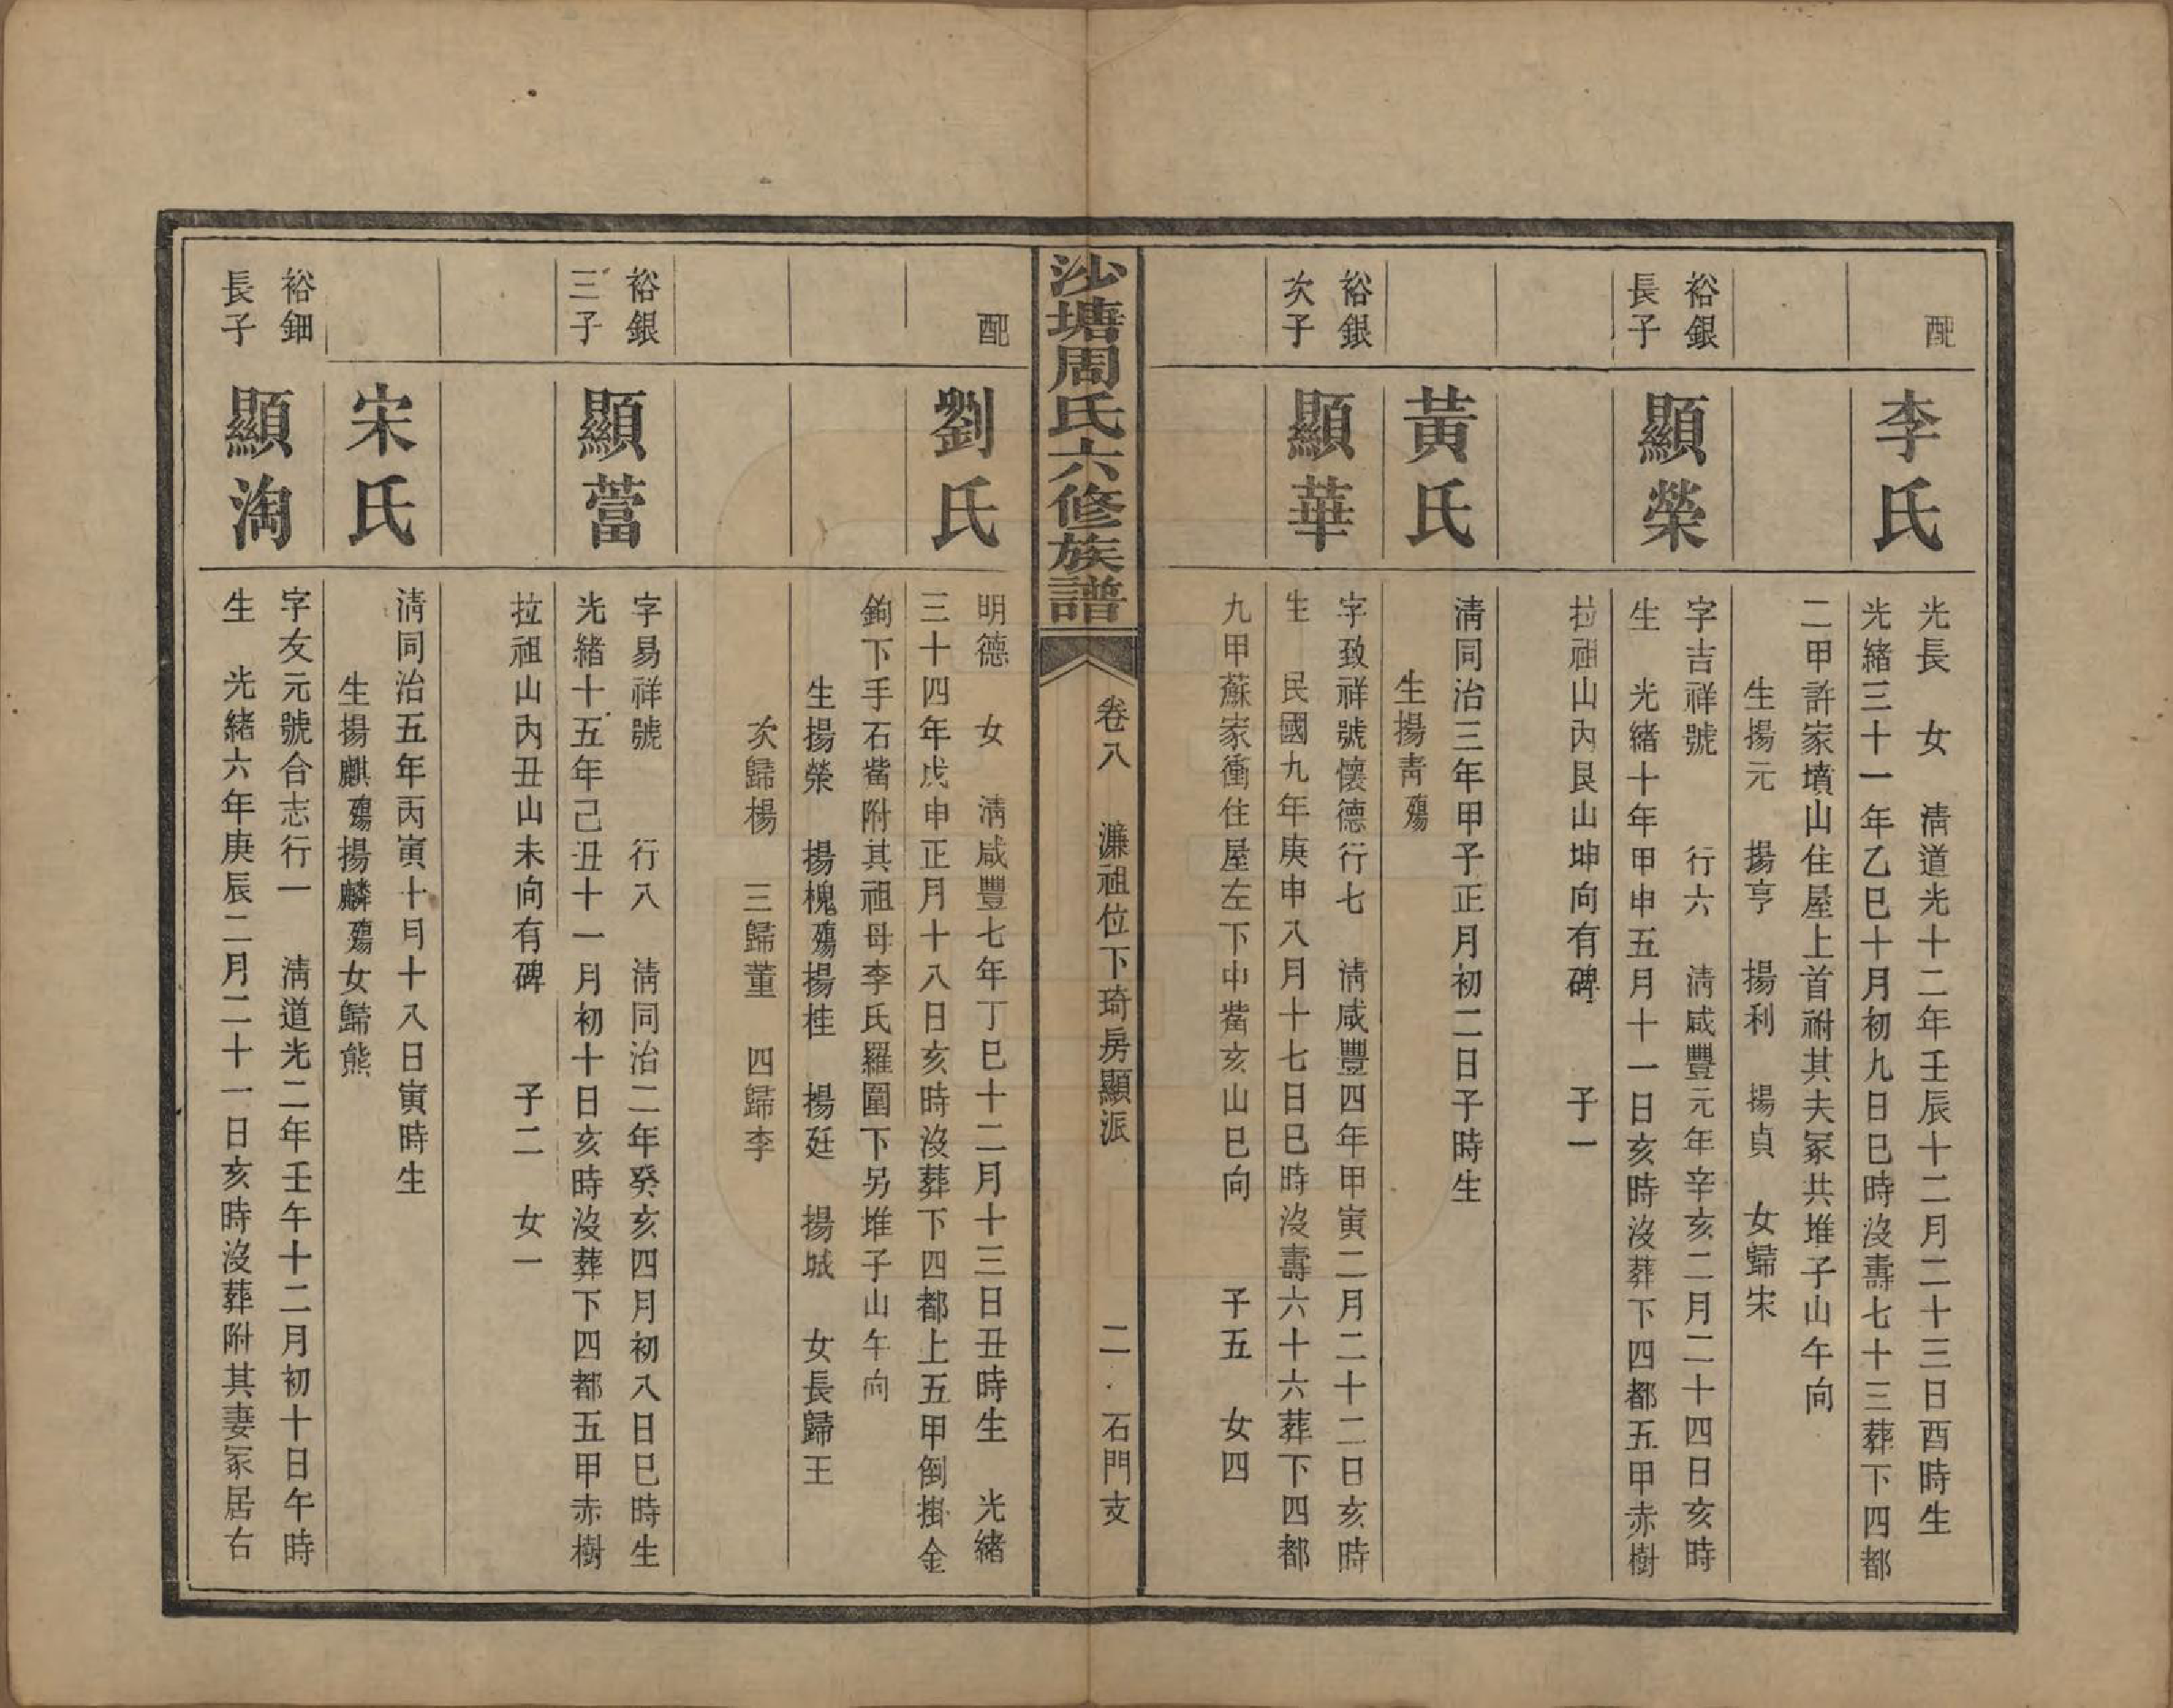 配
李氏
光長　女　清道光十二年壬辰十二月二十三日酉時生
光緒三十一年乙巳十月初九日巳時沒壽七十三葬下四都
二甲許家墳山住屋上首祔其夫冢共堆子山午向
生揚元　揚亨　揚利　揚貞　女歸宋
裕銀
長子
顯榮
字吉祥號　　行六　清咸豐元年辛亥二月二十四日亥時
生　光緒十年甲申五月十一日亥時沒葬下四都五甲赤樹
拉祖山內艮山坤向有碑　　子一
黃氏
清同治三年甲子正月初二日子時生
生揚青殤
裕銀
次子
顯華
字致祥號懷德行七　清咸豐四年甲寅二月二十二日亥時
生　民國九年庚申八月十七日巳時沒壽六十六葬下四都
九甲蘇家衝住屋左下中嘴亥山巳向　　子五　女四
沙塘周氏六修族譜
卷八　濂祖位下琦房顯派
二　石門支
配
劉氏
明德　女　清咸豐七年丁巳十二月十三日丑時生　光緒
三十四年戊申正月十八日亥時沒葬下四都上五甲倒掛金
鉤下手石嘴附其祖母李氏羅圍下另堆子山午向
生揚榮　揚槐殤揚桂　揚廷　揚城　女長歸王
次歸楊　三歸董　四歸李
裕銀
三子
顯當
字易祥號　　行八　清同治二年癸亥四月初八日巳時生
光緒十五年己丑十一月初十日亥時沒葬下四都五甲赤樹
拉祖山內丑山未向有碑　　子二　女一
宋氏
清同治五年丙寅十月十八日寅時生
生揚麒殤揚麟殤女歸熊
裕鈿
長子
顯淘
字友元號合志行一　清道光二年壬午十二月初十日午時
生　光緒六年庚辰二月二十一日亥時沒葬附其妻冢居右